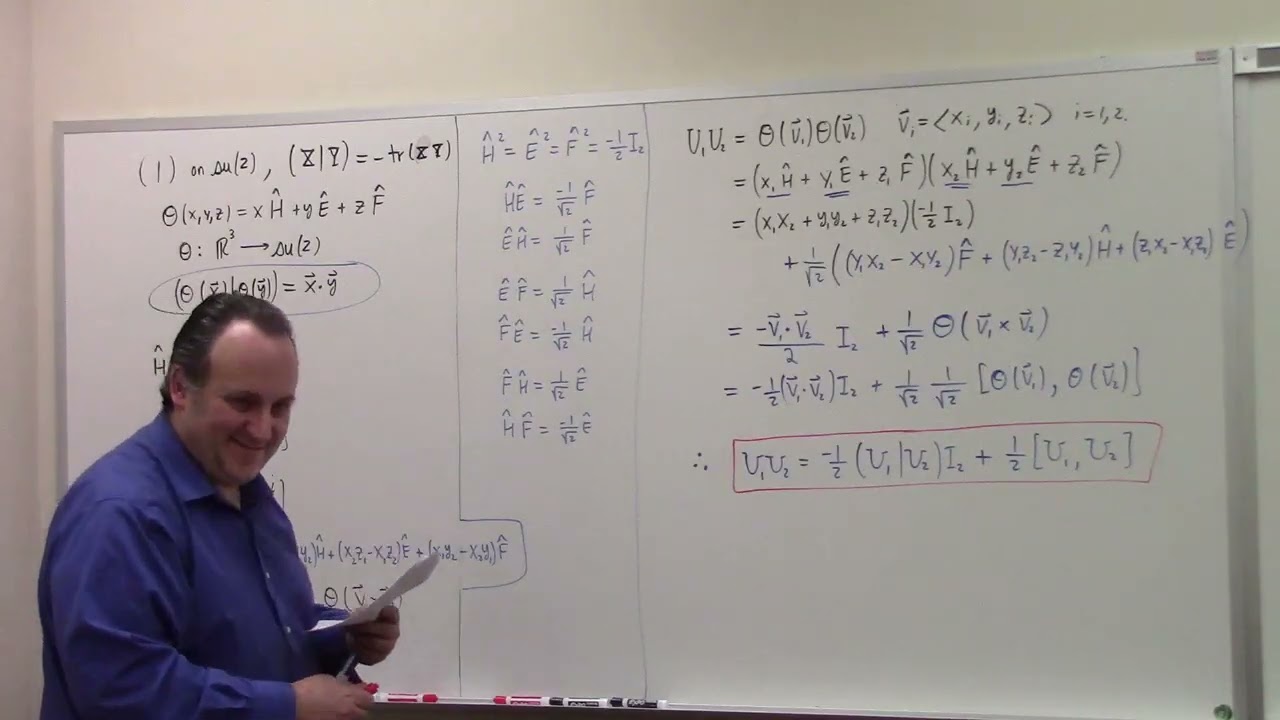 ( | ) on su(2), (X|Y) = -tr(XY)
Θ(x,y,z) = xĤ + yÊ + zF̂
Θ: ℝ³ → su(2)
(Θ(x⃗)|Θ(y⃗)) = x⃗·y⃗
Ĥ
y₂)Ĥ + (x₂z₁ - x₁z₂)Ê + (x₁y₂ - x₂y₁)F̂
Ĥ² = Ê² = F̂² = -1/2 I₂
ĤÊ = -1/√2 F̂
ÊĤ = 1/√2 F̂
ÊF̂ = 1/√2 Ĥ
F̂Ê = -1/√2 Ĥ
F̂Ĥ = 1/√2 Ê
ĤF̂ = -1/√2 Ê
U₁U₂ = Θ(v⃗₁)Θ(v⃗₂) v⃗ᵢ = <xᵢ, yᵢ, zᵢ> i=1,2.
= (x₁Ĥ + y₁Ê + z₁F̂)(x₂Ĥ + y₂Ê + z₂F̂)
= (x₁x₂ + y₁y₂ + z₁z₂)(-1/2 I₂)
+ 1/√2 ((y₁x₂ - x₁y₂)F̂ + (y₁z₂ - z₁y₂)Ĥ + (z₁x₂ - x₁z₂)Ê)
= -v⃗₁·v⃗₂/2 I₂ + 1/√2 Θ(v⃗₁ × v⃗₂)
= -1/2(v⃗₁·v⃗₂)I₂ + 1/√2 1/√2 [Θ(v⃗₁), Θ(v⃗₂)]
∴ U₁U₂ = -1/2 (U₁|U₂)I₂ + 1/2 [U₁, U₂]